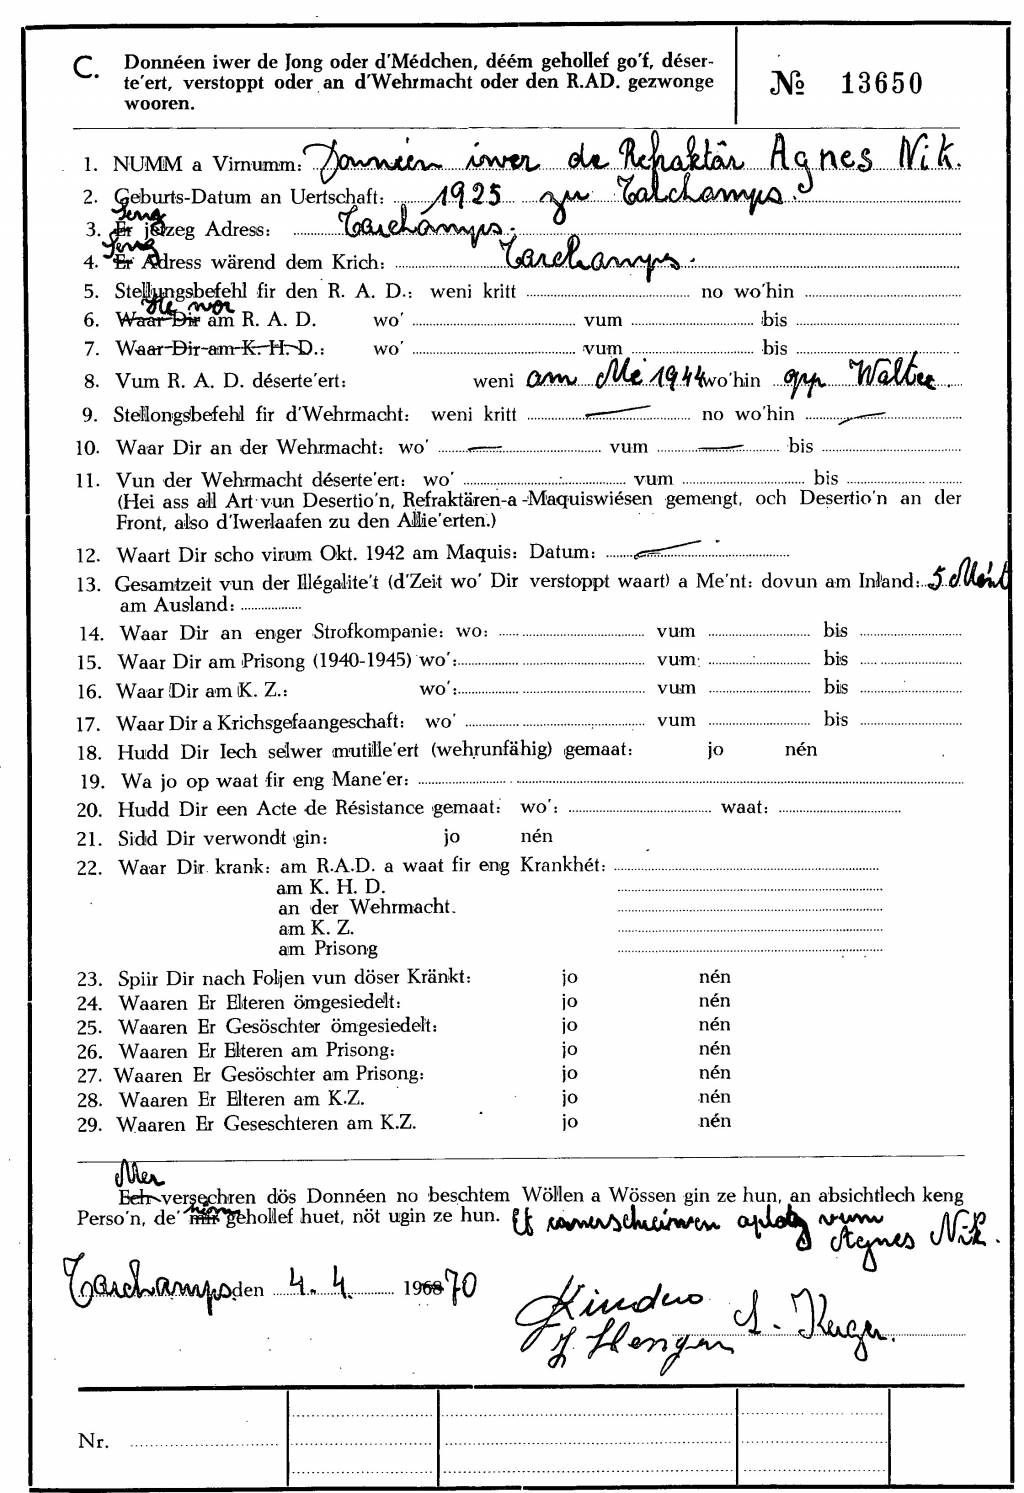 C. Donnéen iwer de Jong oder d'Médchen, déém gehollef go'f, déser-
te'ert, verstoppt oder an d'Wehrmacht oder den R.AD. gezwonge
wooren.
№ 13650
1. NUMM a Virnumm: Donnéen iwer de Refraktär Agnes Nik.
2. Geburts-Datum an Uertschaft: 1925 zu Tarchamps.
Seng
3. Er jetzeg Adress: Tarchamps.
Seng
4. Er Adress wärend dem Krich: Tarchamps.
5. Stellungsbefehl fir den R. A. D.: weni kritt no wo'hin
He wor
6. Waar Dir am R. A. D. wo' vum bis
7. Waar Dir am K. H. D.: wo' vum bis
8. Vum R. A. D. déserte'ert: weni am Mé 1944 wo'hin op Walter
9. Stellongsbefehl fir d'Wehrmacht: weni kritt — no wo'hin —
10. Waar Dir an der Wehrmacht: wo' — vum — bis
11. Vun der Wehrmacht déserte'ert: wo' vum bis
(Hei ass all Art vun Desertio'n, Refraktären-a -Maquiswiésen gemengt, och Desertio'n an der
Front, also d'Iwerlaafen zu den Allie'erten.)
12. Waart Dir scho virum Okt. 1942 am Maquis: Datum: —
13. Gesamtzeit vun der Illégalite't (d'Zeit wo' Dir verstoppt waart) a Me'nt: dovun am Inland: 5 Mént
am Ausland:
14. Waar Dir an enger Strofkompanie: wo: vum bis
15. Waar Dir am Prisong (1940-1945) wo': vum: bis
16. Waar Dir am K. Z.: wo': vum bis
17. Waar Dir a Krichsgefaangeschaft: wo' vum bis
18. Hudd Dir Iech selwer mutille'ert (wehrunfähig) gemaat: jo nén
19. Wa jo op waat fir eng Mane'er:
20. Hudd Dir een Acte de Résistance gemaat: wo': waat:
21. Sidd Dir verwondt gin: jo nén
22. Waar Dir krank: am R.A.D. a waat fir eng Krankhét:
am K. H. D.
an der Wehrmacht.
am K. Z.
am Prisong
23. Spiir Dir nach Foljen vun döser Kränkt: jo nén
24. Waaren Er Elteren ömgesiedelt: jo nén
25. Waaren Er Gesöschter ömgesiedelt: jo nén
26. Waaren Er Elteren am Prisong: jo nén
27. Waaren Er Gesöschter am Prisong: jo nén
28. Waaren Er Elteren am K.Z. jo nén
29. Waaren Er Geseschteren am K.Z. jo nén
Mer
Ech versechren dös Donnéen no beschtem Wöllen a Wössen gin ze hun, an absichtlech keng
Perso'n, de' mir gehollef huet, nöt ugin ze hun. vum
Agnes Nik.
Tarchamps den 4. 4. 1968 70
J. Hengen
Nr.